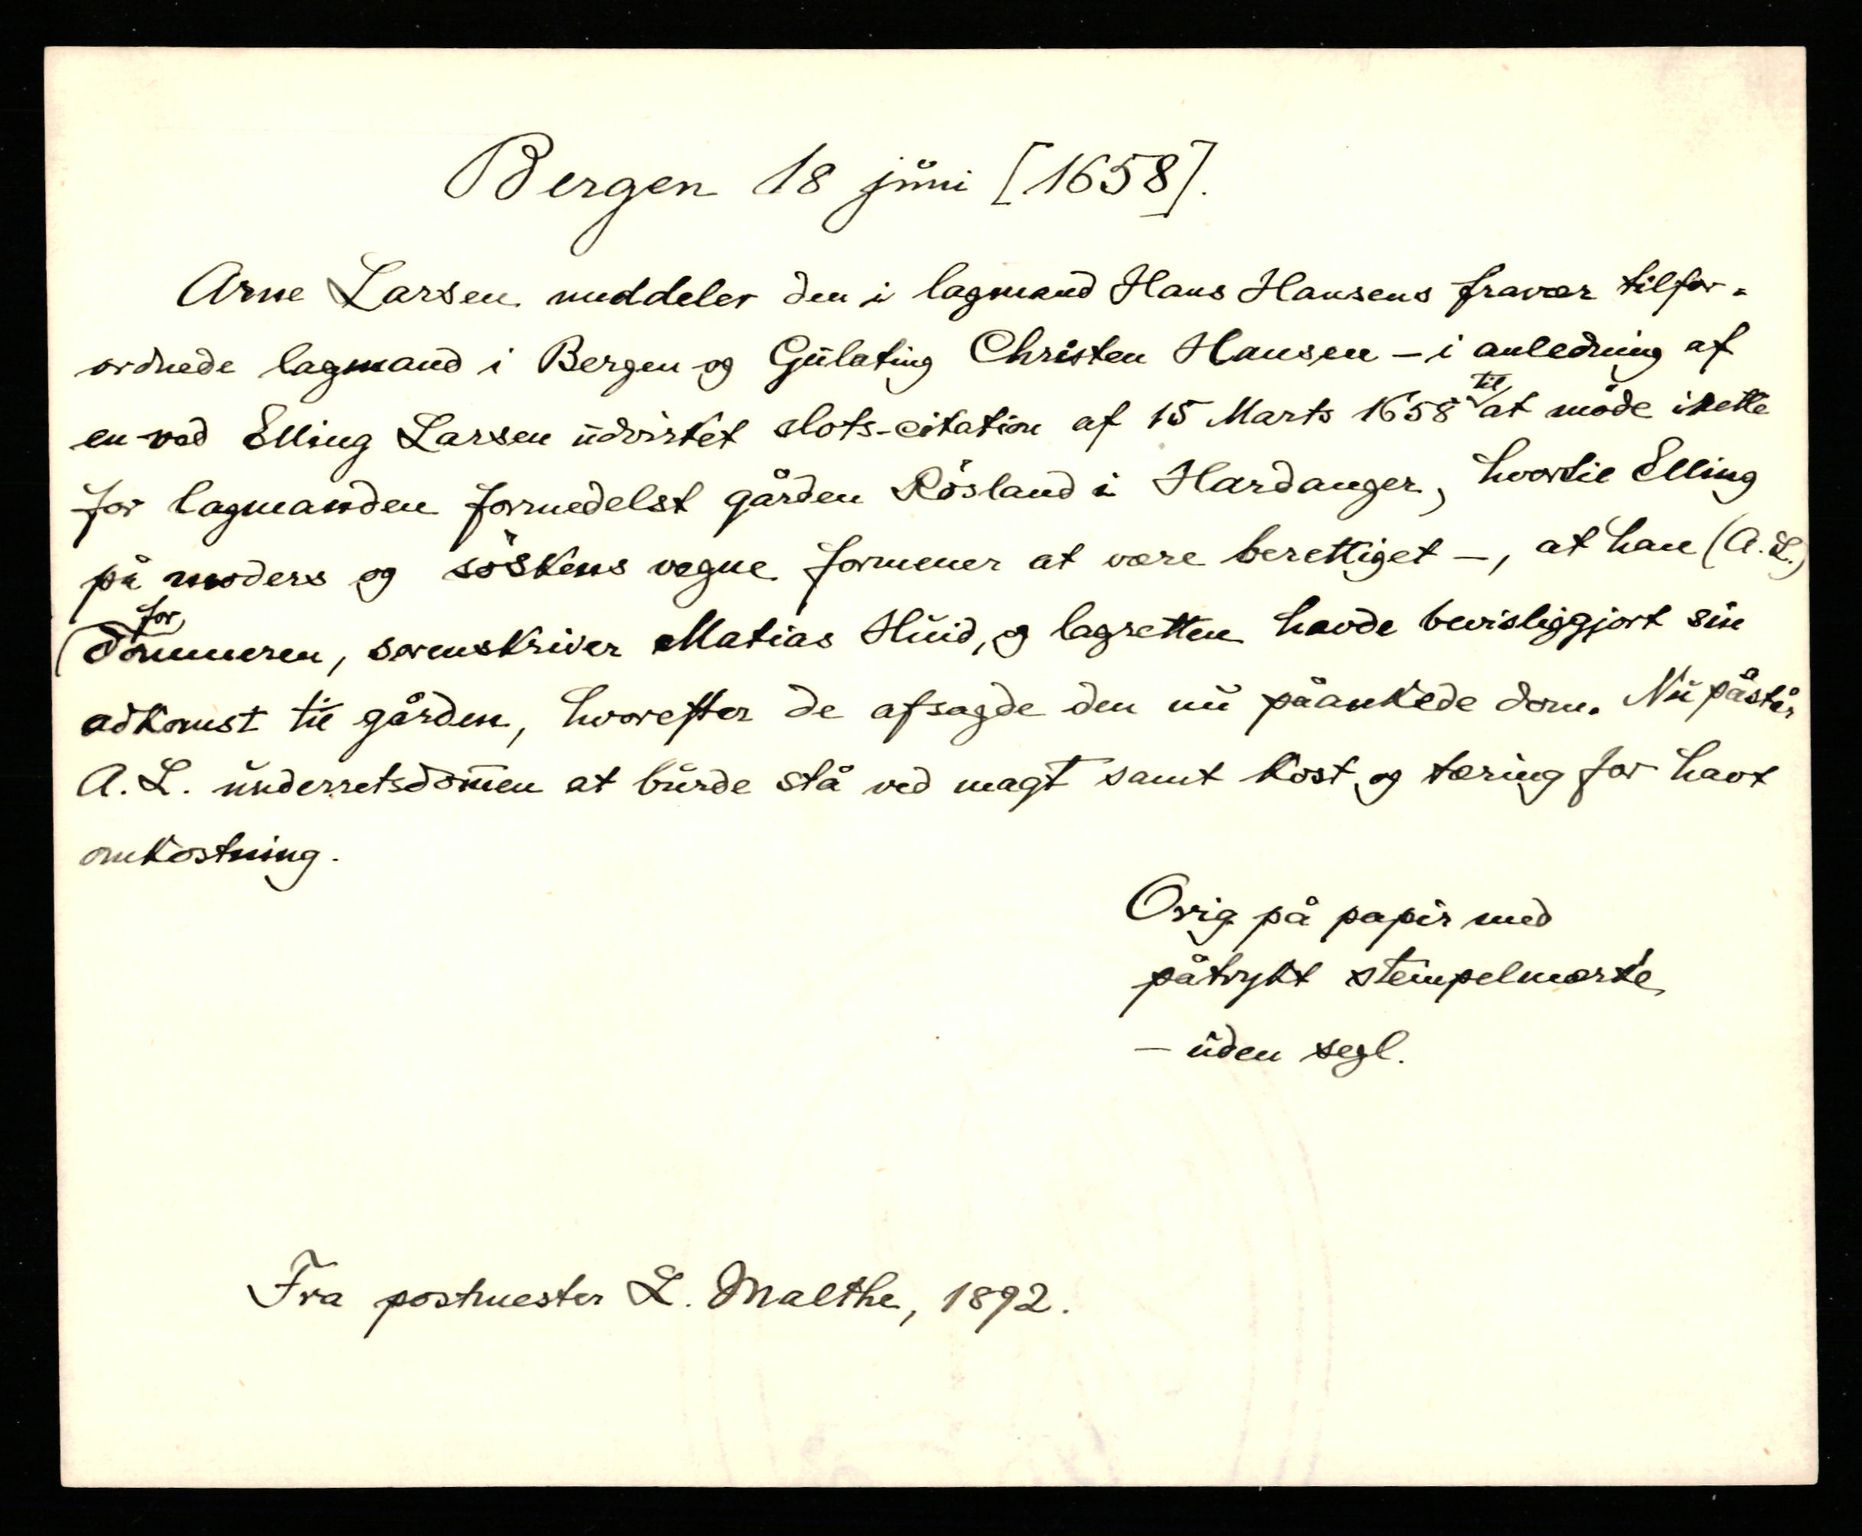 Bergen 18 juni [1658].
Arne Larsen meddeler den i lagmand Hans Hansens fravær tilfor-
ordnede lagmand i Bergen og Gulating Christen Hansen – i anledning af
en ved Elling Larsen udvirket slots-citation af 15 Marts 1658 til at möde irette
for lagmanden formedelst gården Rösland i Hardanger, hvortil Elling
på moders og söskens vegne formener at være berettiget –, at han (A. L.)
for dommeren, sorenskriver Matias Huid, og lagretten havde bevisliggjort sin
adkomst til gården, hvorefter de afsagde den nu påankede dom. Nu påstår
A. L. underretsdom̄en at burde stå ved magt samt kost og tæring for havt
omkostning.
Orig på papir med
påtrykt stempelmærke
– uden segl.
Fra postmester L. Malthe, 1892.